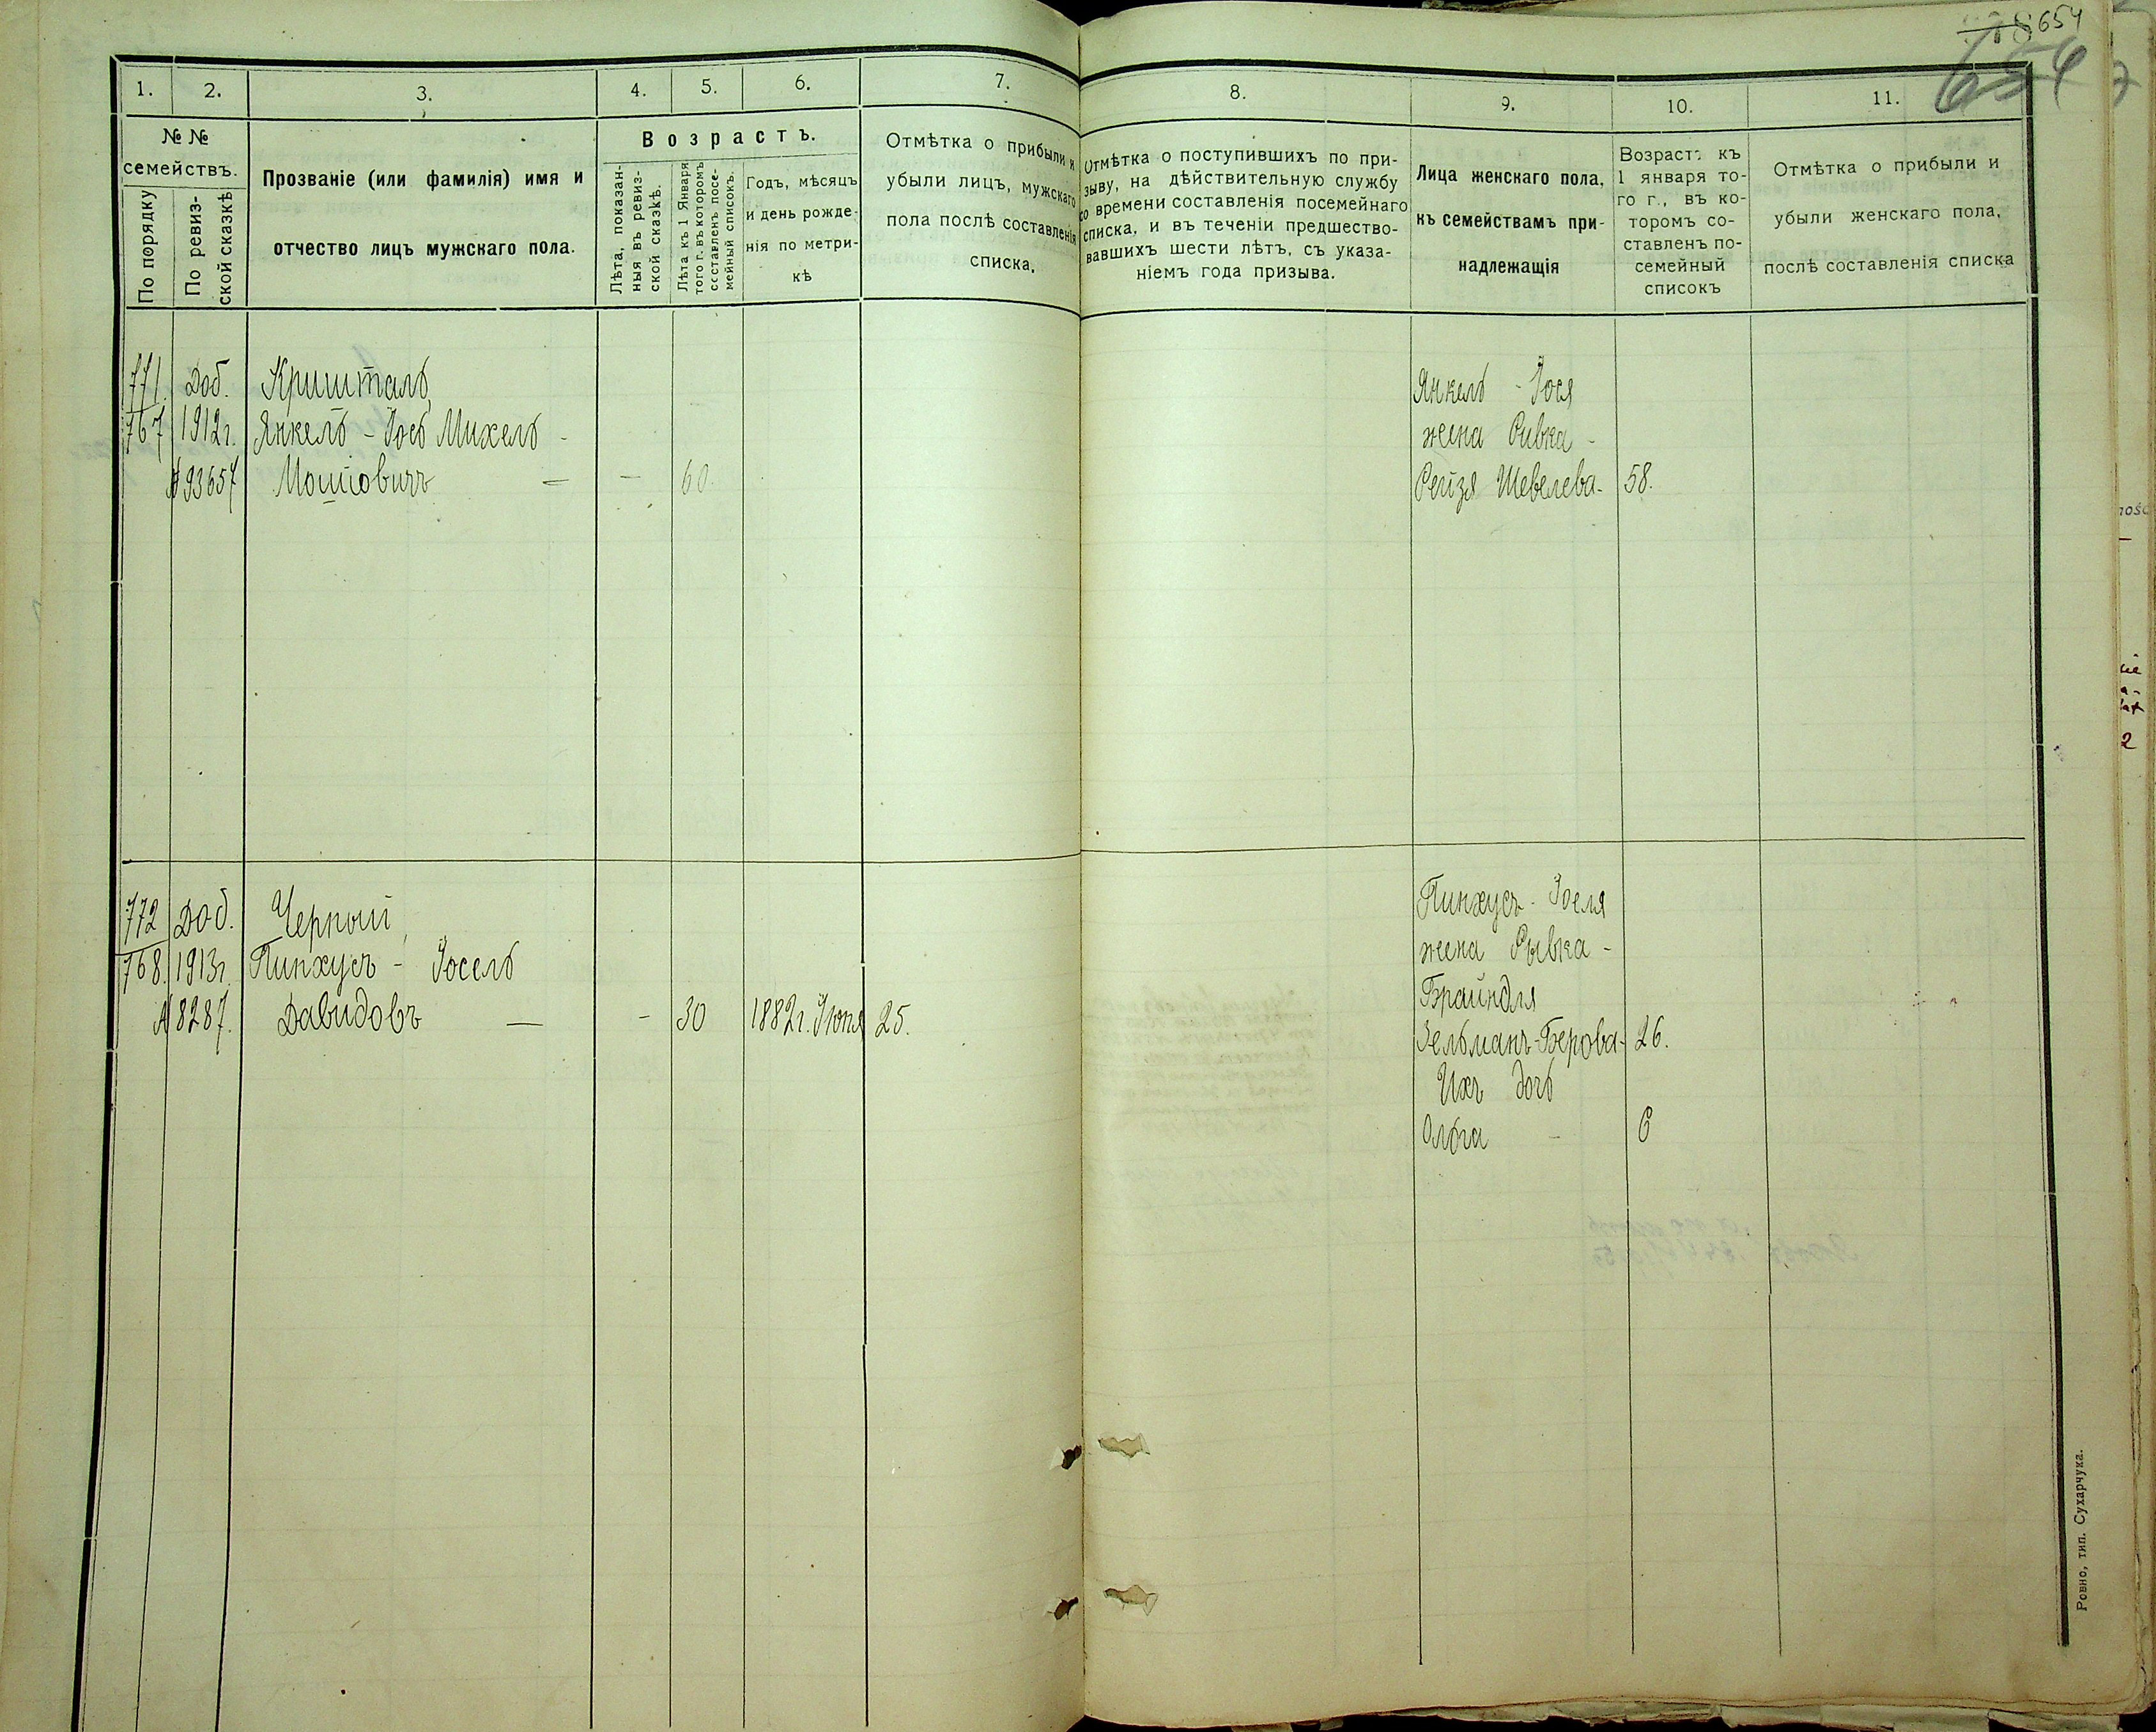 654
654
1. 2. 3. 4. 5. 6. 7. 8. 9. 10. 11.
№ №
семействъ.
По порядку
По ревиз-
ской сказкѣ
Прозваніе (или фамилія) имя и
отчество лицъ мужскаго пола.
Возрастъ.
Лѣта, показан-
ныя въ ревиз-
ской сказкѣ.
Лѣта къ 1 Января
того г. въ которомъ
составленъ посе-
мейный списокъ.
Годъ, мѣсяцъ
и день рожде-
нія по метри-
кѣ
Отмѣтка о прибыли и
убыли лицъ, мужскаго
пола послѣ составленія
списка.
Отмѣтка о поступившихъ по при-
зыву, на дѣйствительную службу
со времени составленія посемейнаго
списка, и въ теченіи предшество-
вавшихъ шести лѣтъ, съ указа-
ніемъ года призыва.
Лица женскаго пола,
къ семействамъ при-
надлежащія
Возрастъ къ
1 января то-
го г., въ ко-
торомъ со-
ставленъ по-
семейный
списокъ
Отмѣтка о прибыли и
убыли женскаго пола,
послѣ составленія списка
771. Доб. Кришталь, Янкель - Іося
767 1912г. Янкель - Іось Михель - жена Ривка -
Мошіовичъ — — 60. Рейзя Шевелева - 58.
772 Доб. Черный, Пинхусъ - Іоселя
768. 1913г. Пинхусъ - Іосель жена Рывка -
№ 8287. Давидовъ — - 30 1882г. Іюня 25. Брайндля
Зельманъ-Берова - 26.
Ихъ дочь
Ольга - 6
Ровно, тип. Сухарчука.